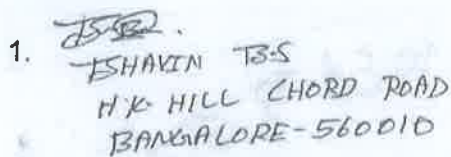 1.
BHAVIN B.S
H K HILL CHORD ROAD
BANGALORE-560010